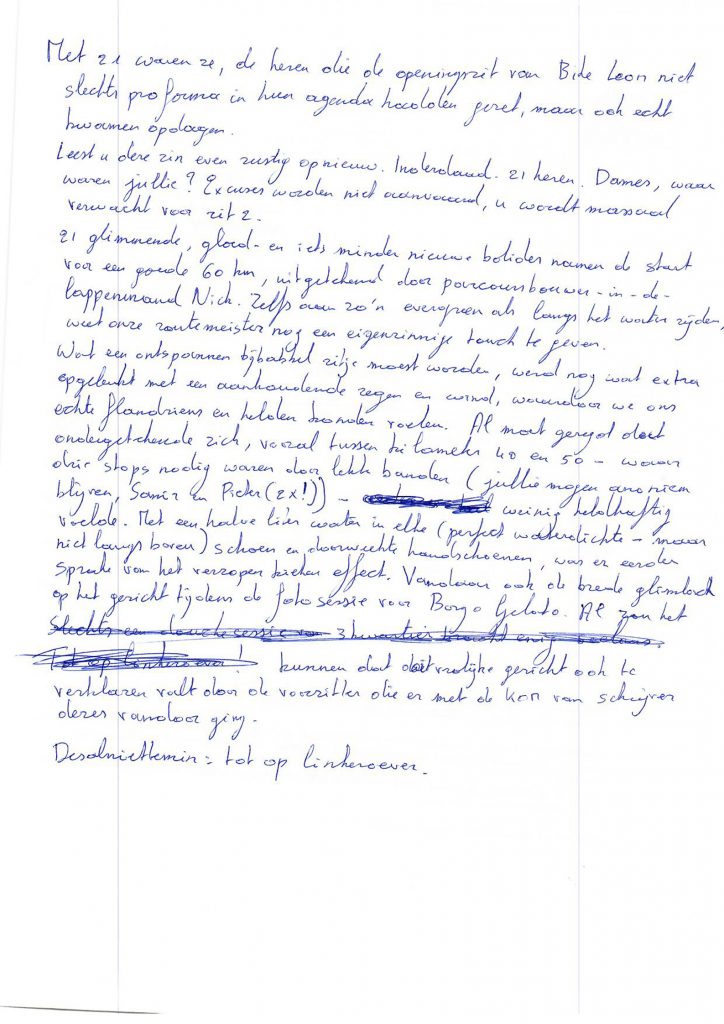 Met 21 waren ze, de heren die de openingsrit van Bike Loon niet
slechts pro forma in hun agenda hadden gezet, maar ook echt
kwamen opdagen.
Leest u deze zin even rustig opnieuw. Inderdaad. 21 heren. Dames, waar
waren jullie? Excuses worden niet aanvaard, u wordt massaal
verwacht voor rit 2.
21 glimmende, glad- en iets minder nieuwe bolides namen de start
voor een goede 60 km, uitgetekend door parcoursbouwer-in-de-
lappenmand Nick. Zelfs aan zo'n evergreen als langs het water rijden,
weet onze routemeister nog een eigenzinnige touch te geven.
Wat een ontspannen bijbabbel ritje moest worden, werd nog wat extra
opgeleukt met een aanhoudende regen en wind, waardoor we ons
echte flandriens en helden konden voelen. Al moet gezegd dat
ondergetekende zich, vooral tussen kilometer 40 en 50 - waar
drie stops nodig waren door lekke banden (jullie mogen anoniem
blijven, Samir en Pieter (2x!)) - weinig heldhaftig
voelde. Met een halve liter water in elke (perfect waterdichte - maar
niet langs boven) schoen en doorweekte handschoenen, was er eerder
sprake van het verzopen kieken effect. Vandaar ook de brede glimlach
op het gezicht tijdens de fotosessie voor Borgo Gelato. Al zou het
Slechts een douchesessie van 3 kwartier bracht enig soelaas.
Tot op linkeroever!
kunnen dat dat vrolijke gezicht ook te
verklaren valt door de voorzitter die er met de KOM van schrijver
dezes vandoor ging.
Desalniettemin: tot op linkeroever.